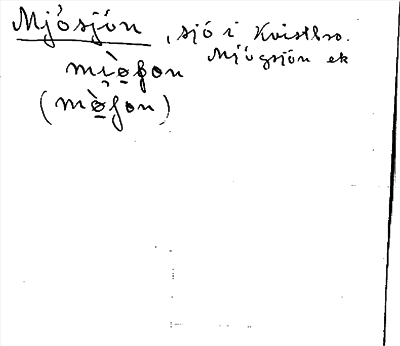 Mjösjön, sjö i Kvistbro.
Mjögsjön ek
mìo̲ʃon
(mò̲ʃon)